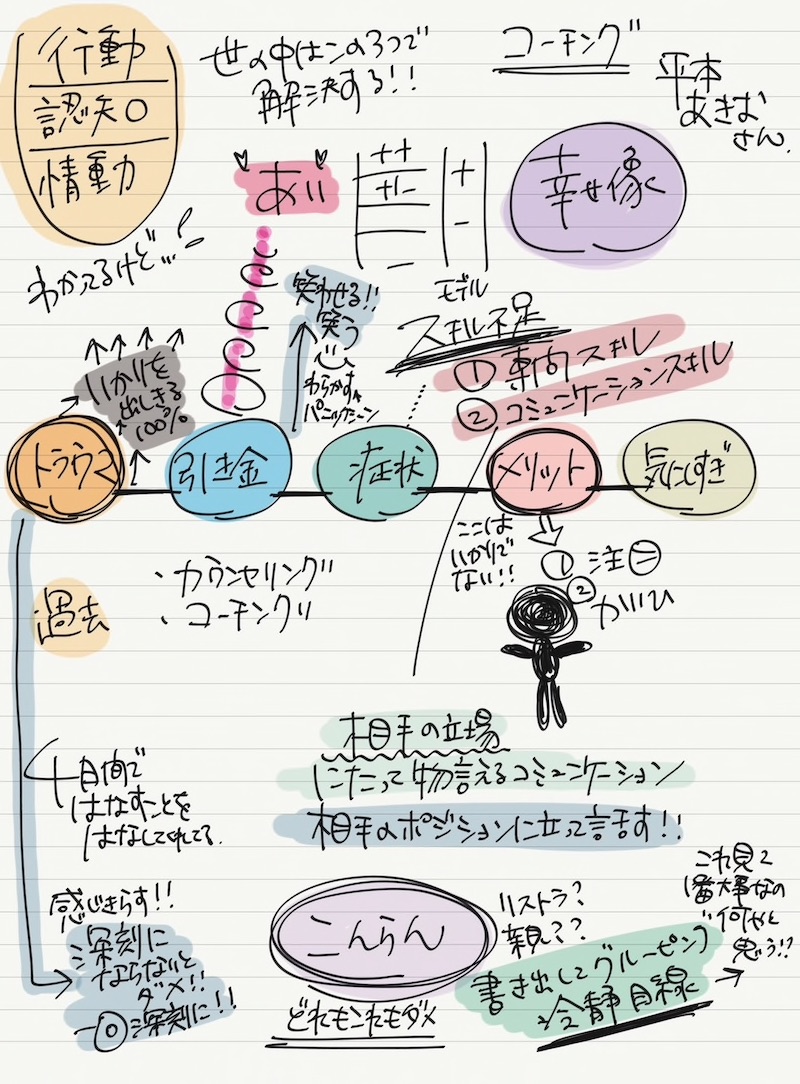 行動
認知
情動
世の中はこの3つで
解決する!!
コーチング
平本
あきお
さん.
わかってるけど…!
あい
++
+-
-
+
-
モデル
幸せ像
笑わせる!!
笑う
わらかす
パニックシーン
スキル不足
① 専門スキル
② コミュニケーションスキル
いかりを
出しきる
100%
トラウマ
引き金
症状
メリット
気にしすぎ
ここは
いかりで
ない!!
① 注目
②
過去
・カウンセリング
・コーチング
相手の立場
にたって物言えるコミュニケーション
相手のポジションに立って話す!!
十日間で
はなすことを
はなしてくれてる.
感じきらす!!
深刻に
ならないと
ダメ!!
深刻に!!
こんらん
どれもこれもダメ
リストラ?
親??
書き出してグルーピング
冷静目線
これ見て
1番大事なの
何やと
思う!?